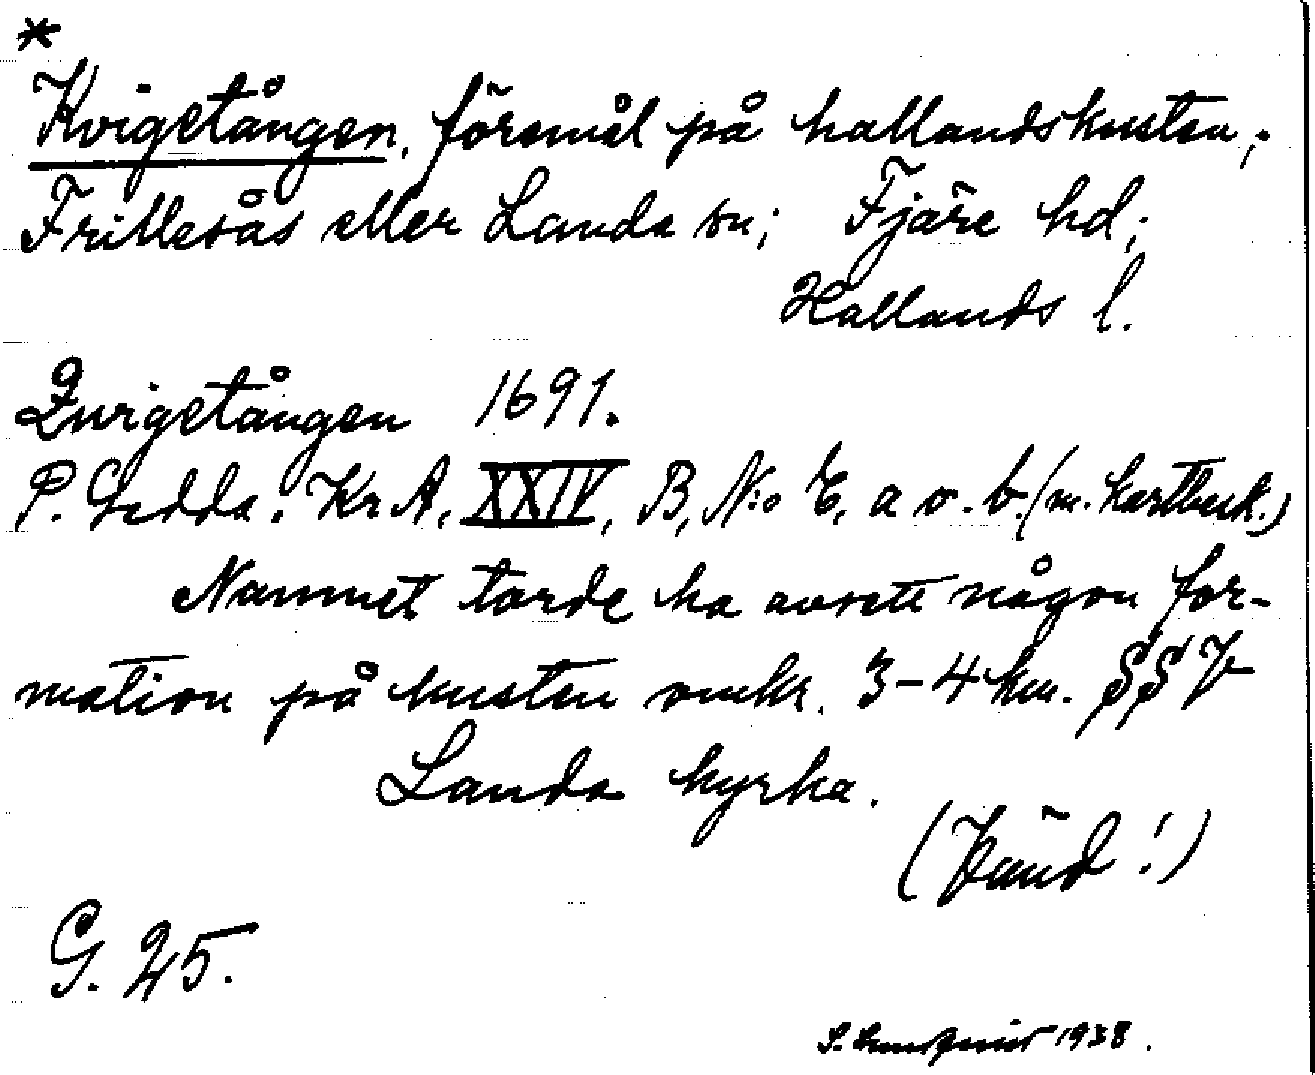 *
Kvigetången, föremål på hallandskusten;
Frillesås eller Landa sn; Fjäre hd;
Hallands l.
Qwigetången 1691.
P. Gedda. Kr A, XXIV, B, N:o 6, a o. b. (m. kartbesk.)
Namnet torde ha avsett någon for-
mation på kusten omkr. 3-4 km. SSV
Landa kyrka.
(Vänd!)
G. 25.
1938.